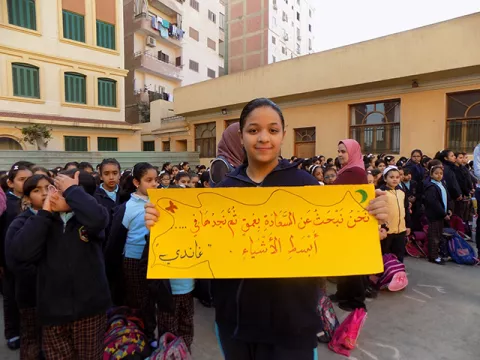 نحن نبحث عن السعادة بعمق ثم نجدها في ....
أبسط الأشياء . "غاندي"